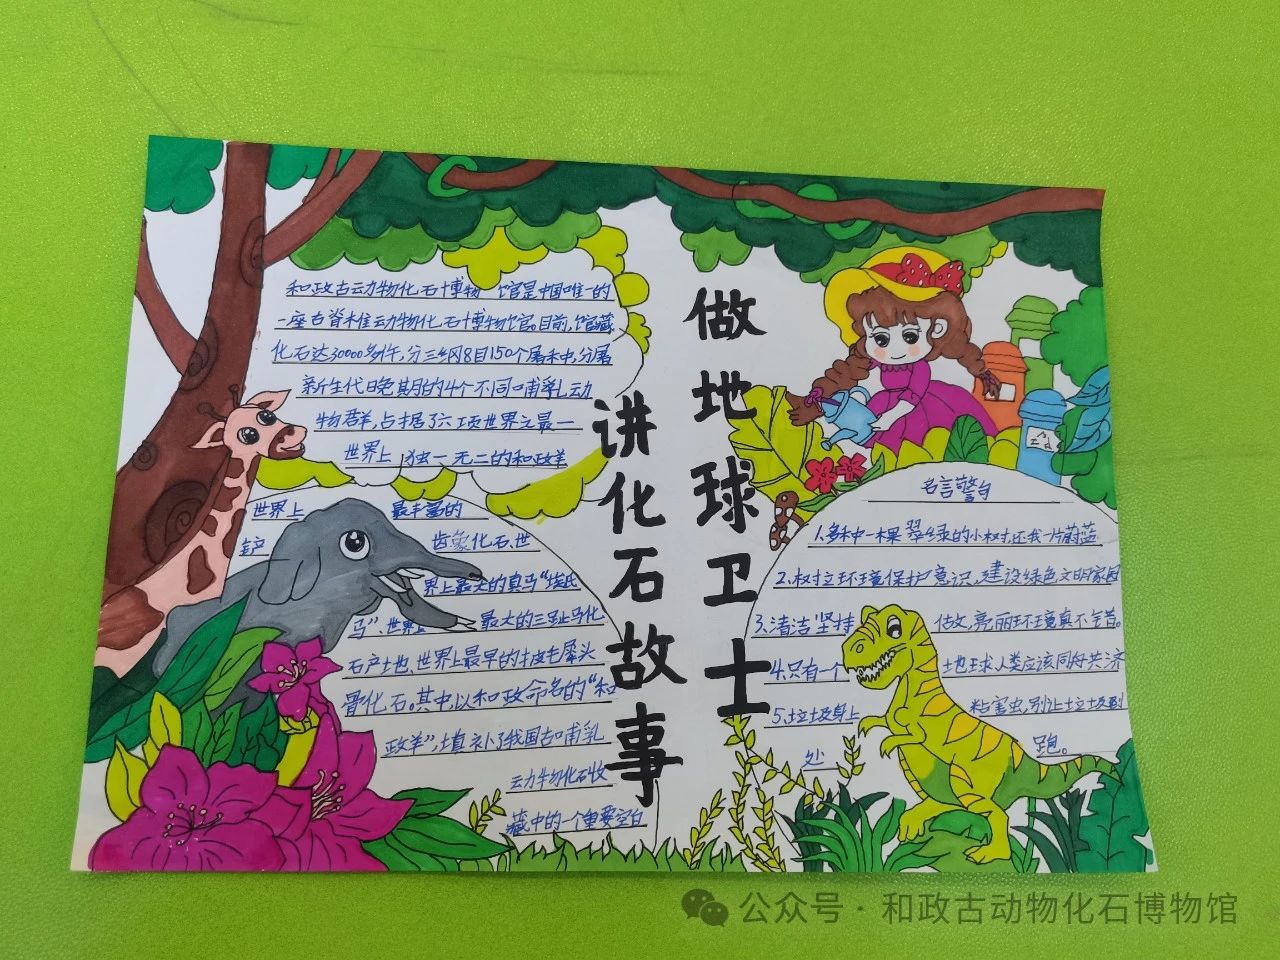 做地球卫士
讲化石故事
和政古动物化石博物馆是中国唯一的
一座古脊椎动物化石博物馆。目前,馆藏
化石达30000多件,分三纲8目150个属种,分属
新生代晚期的4个不同哺乳动
物群,占据了六项世界之最一
世界上独一无二的和政羊
世界上最丰富的
铲齿象化石、世
界上最大的真马“埃氏
马”、世界上最大的三趾马化
石产地、世界上最早的披毛犀头
骨化石。其中,以和政命名的“和
政羊”,填补了我国古哺乳
动物化石收
藏中的一个重要空白
名言警句
1.多种一棵翠绿的小树,还我一片蔚蓝
2.树立环境保护意识,建设绿色文明家园
3.清洁坚持做,亮丽环境真不错。
4.只有一个地球人类应该同舟共济
5.垃圾身上粘害虫,别让垃圾到
处跑。
公众号·和政古动物化石博物馆